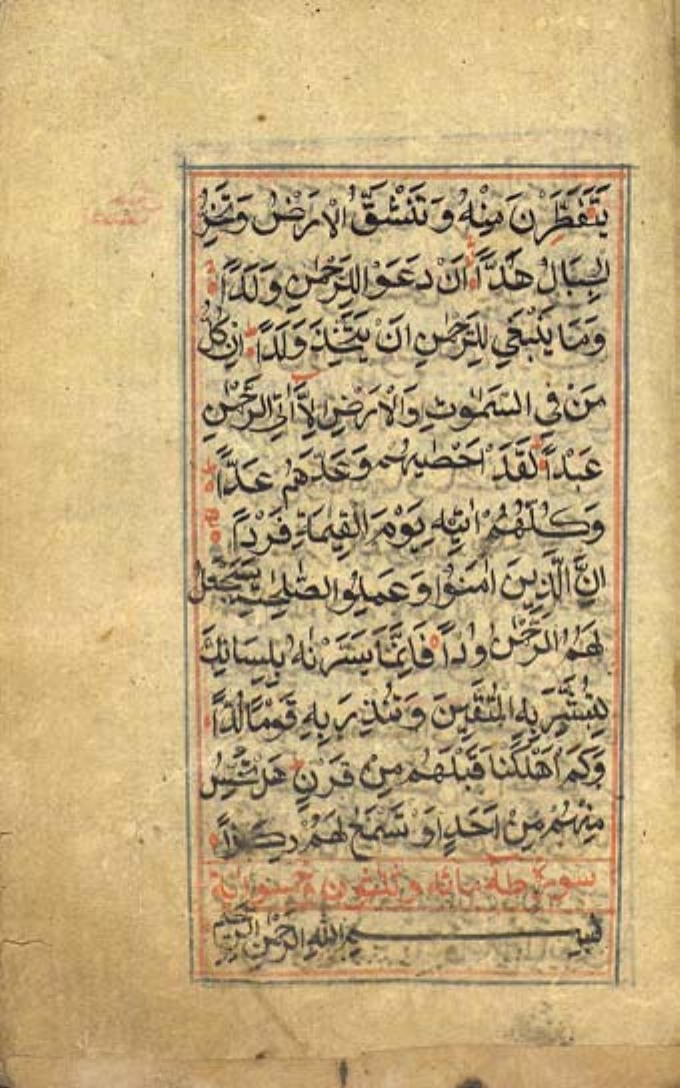 يَتَفَطَّرْنَ مِنْهُ وَتَنْشَقُّ الْاَرْضُ وَتَخِرُّ
الْجِبَالُ هَدًّا اَنْ دَعَوْا لِلرَّحْمٰنِ وَلَدًا
وَمَا يَنْبَغِي لِلرَّحْمٰنِ اَنْ يَتَّخِذَ وَلَدًا اِنْ كُلُّ
مَنْ فِي السَّمٰوٰتِ وَالْاَرْضِ اِلَّا اٰتِي الرَّحْمٰنِ
عَبْدًا لَقَدْ اَحْصٰيهُمْ وَعَدَّهُمْ عَدًّا
وَكُلُّهُمْ اٰتِيهِ يَوْمَ الْقِيٰمَةِ فَرْدًا
اِنَّ الَّذِينَ اٰمَنُوْا وَعَمِلُوا الصّٰلِحٰتِ سَيَجْعَلُ
لَهُمُ الرَّحْمٰنُ وُدًّا فَاِنَّمَا يَسَّرْنٰهُ بِلِسَانِكَ
لِتُبَشِّرَ بِهِ الْمُتَّقِينَ وَتُنْذِرَ بِهِ قَوْمًا لُدًّا
وَكَمْ اَهْلَكْنَا قَبْلَهُمْ مِنْ قَرْنٍ هَلْ تُحِسُّ
مِنْهُمْ مِنْ اَحَدٍ اَوْ تَسْمَعُ لَهُمْ رِكْزًا
سورة طه مائة وثلثون وخمس اية
بِسْمِ اللّٰهِ الرَّحْمٰنِ الرَّحِيمِ